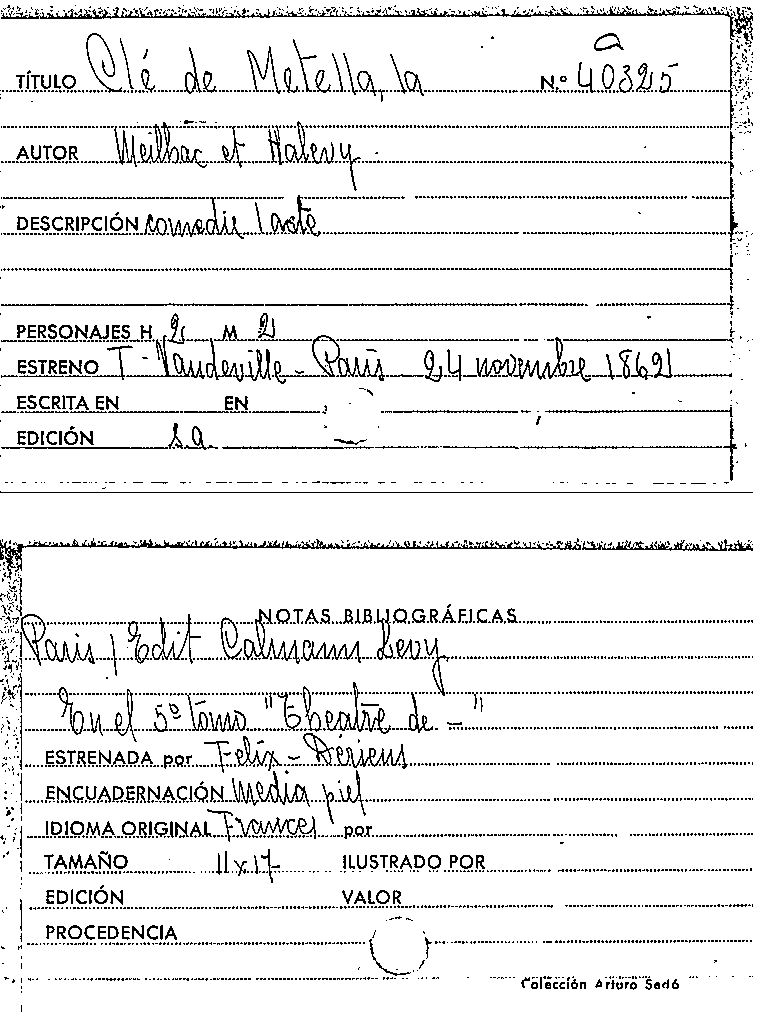 a
TÍTULO Clé de Metella, la N.º 40325
AUTOR Meilhac et Halevy.
DESCRIPCIÓN comedie 1 acte
PERSONAJES H 2 M 2
ESTRENO T - Vaudeville - Paris 24 novembre 1862
ESCRITA EN EN
EDICIÓN s.a.
NOTAS BIBLIOGRÁFICAS
Paris / Edit Calmann Levy
En el 5º tomo "Theatre de - "
ESTRENADA por Felix - Dérieus
ENCUADERNACIÓN Media piel
IDIOMA ORIGINAL Frances por
TAMAÑO 11 x 17 ILUSTRADO POR
EDICIÓN VALOR
PROCEDENCIA
Colección Arturo Sedó